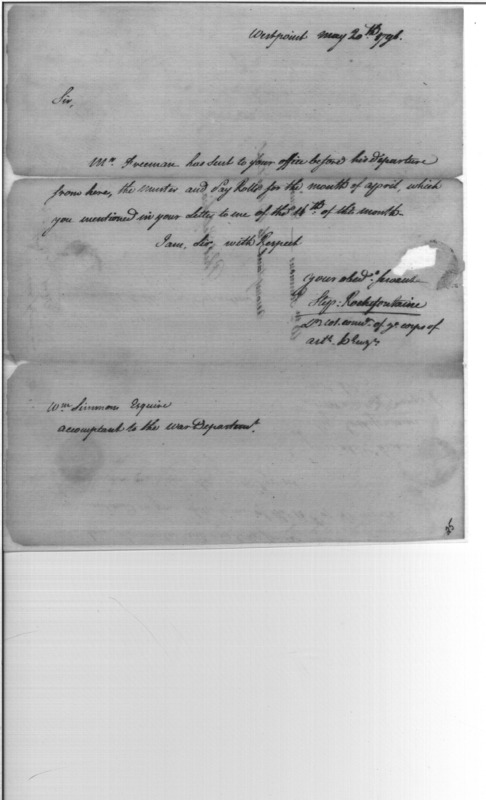 Westpoint may 20th 1796.
Sir,
Mr. Freeman has sent to your office before his departure
from here, the Muster and Pay Rolls for the month of april, which
you mentioned in your Letter to me of the 16th. of the month.
I am, Sir, with Respect
your obedt. servant
Step: Rochefontaine
Lt. Col. comdt. of ye corps of
artt. & Engrs
Wm Simmons Esquire
accomptant to the War Department.